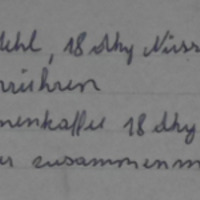 ehl, 18 dkg Nüss
rrühren
nenkaffee 18 dkg
er zusammenm